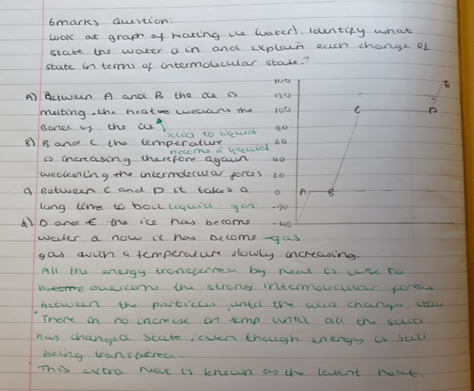 6marks Question:
Look at graph of heating ice (water). Identify what
state the water is in and explain each change of
state in terms of intermolecular state?
A) Between A and B the ice is
melting, the heat weakens the
bonds of the ice
solid to liquid
B) B and C the temperature
become a liquid
is increasing therefore again
weakening the intermolecular forces
c) Between C and D it takes a
long time to boil liquid - gas
d) D and E the ice has become
water & now it has become gas
gas with a temperature slowly increasing.
All the energy transferred by heat is use to
overcome the strong intermolecular forces
between the particles until the solid changes state
There is no increase in temp until all the solid
has changed state, even though energy is still
being transferred.
This extra heat is known as the latent heat.
120
100
80
60
40
20
0
-20
-40
A
B
C
D
E